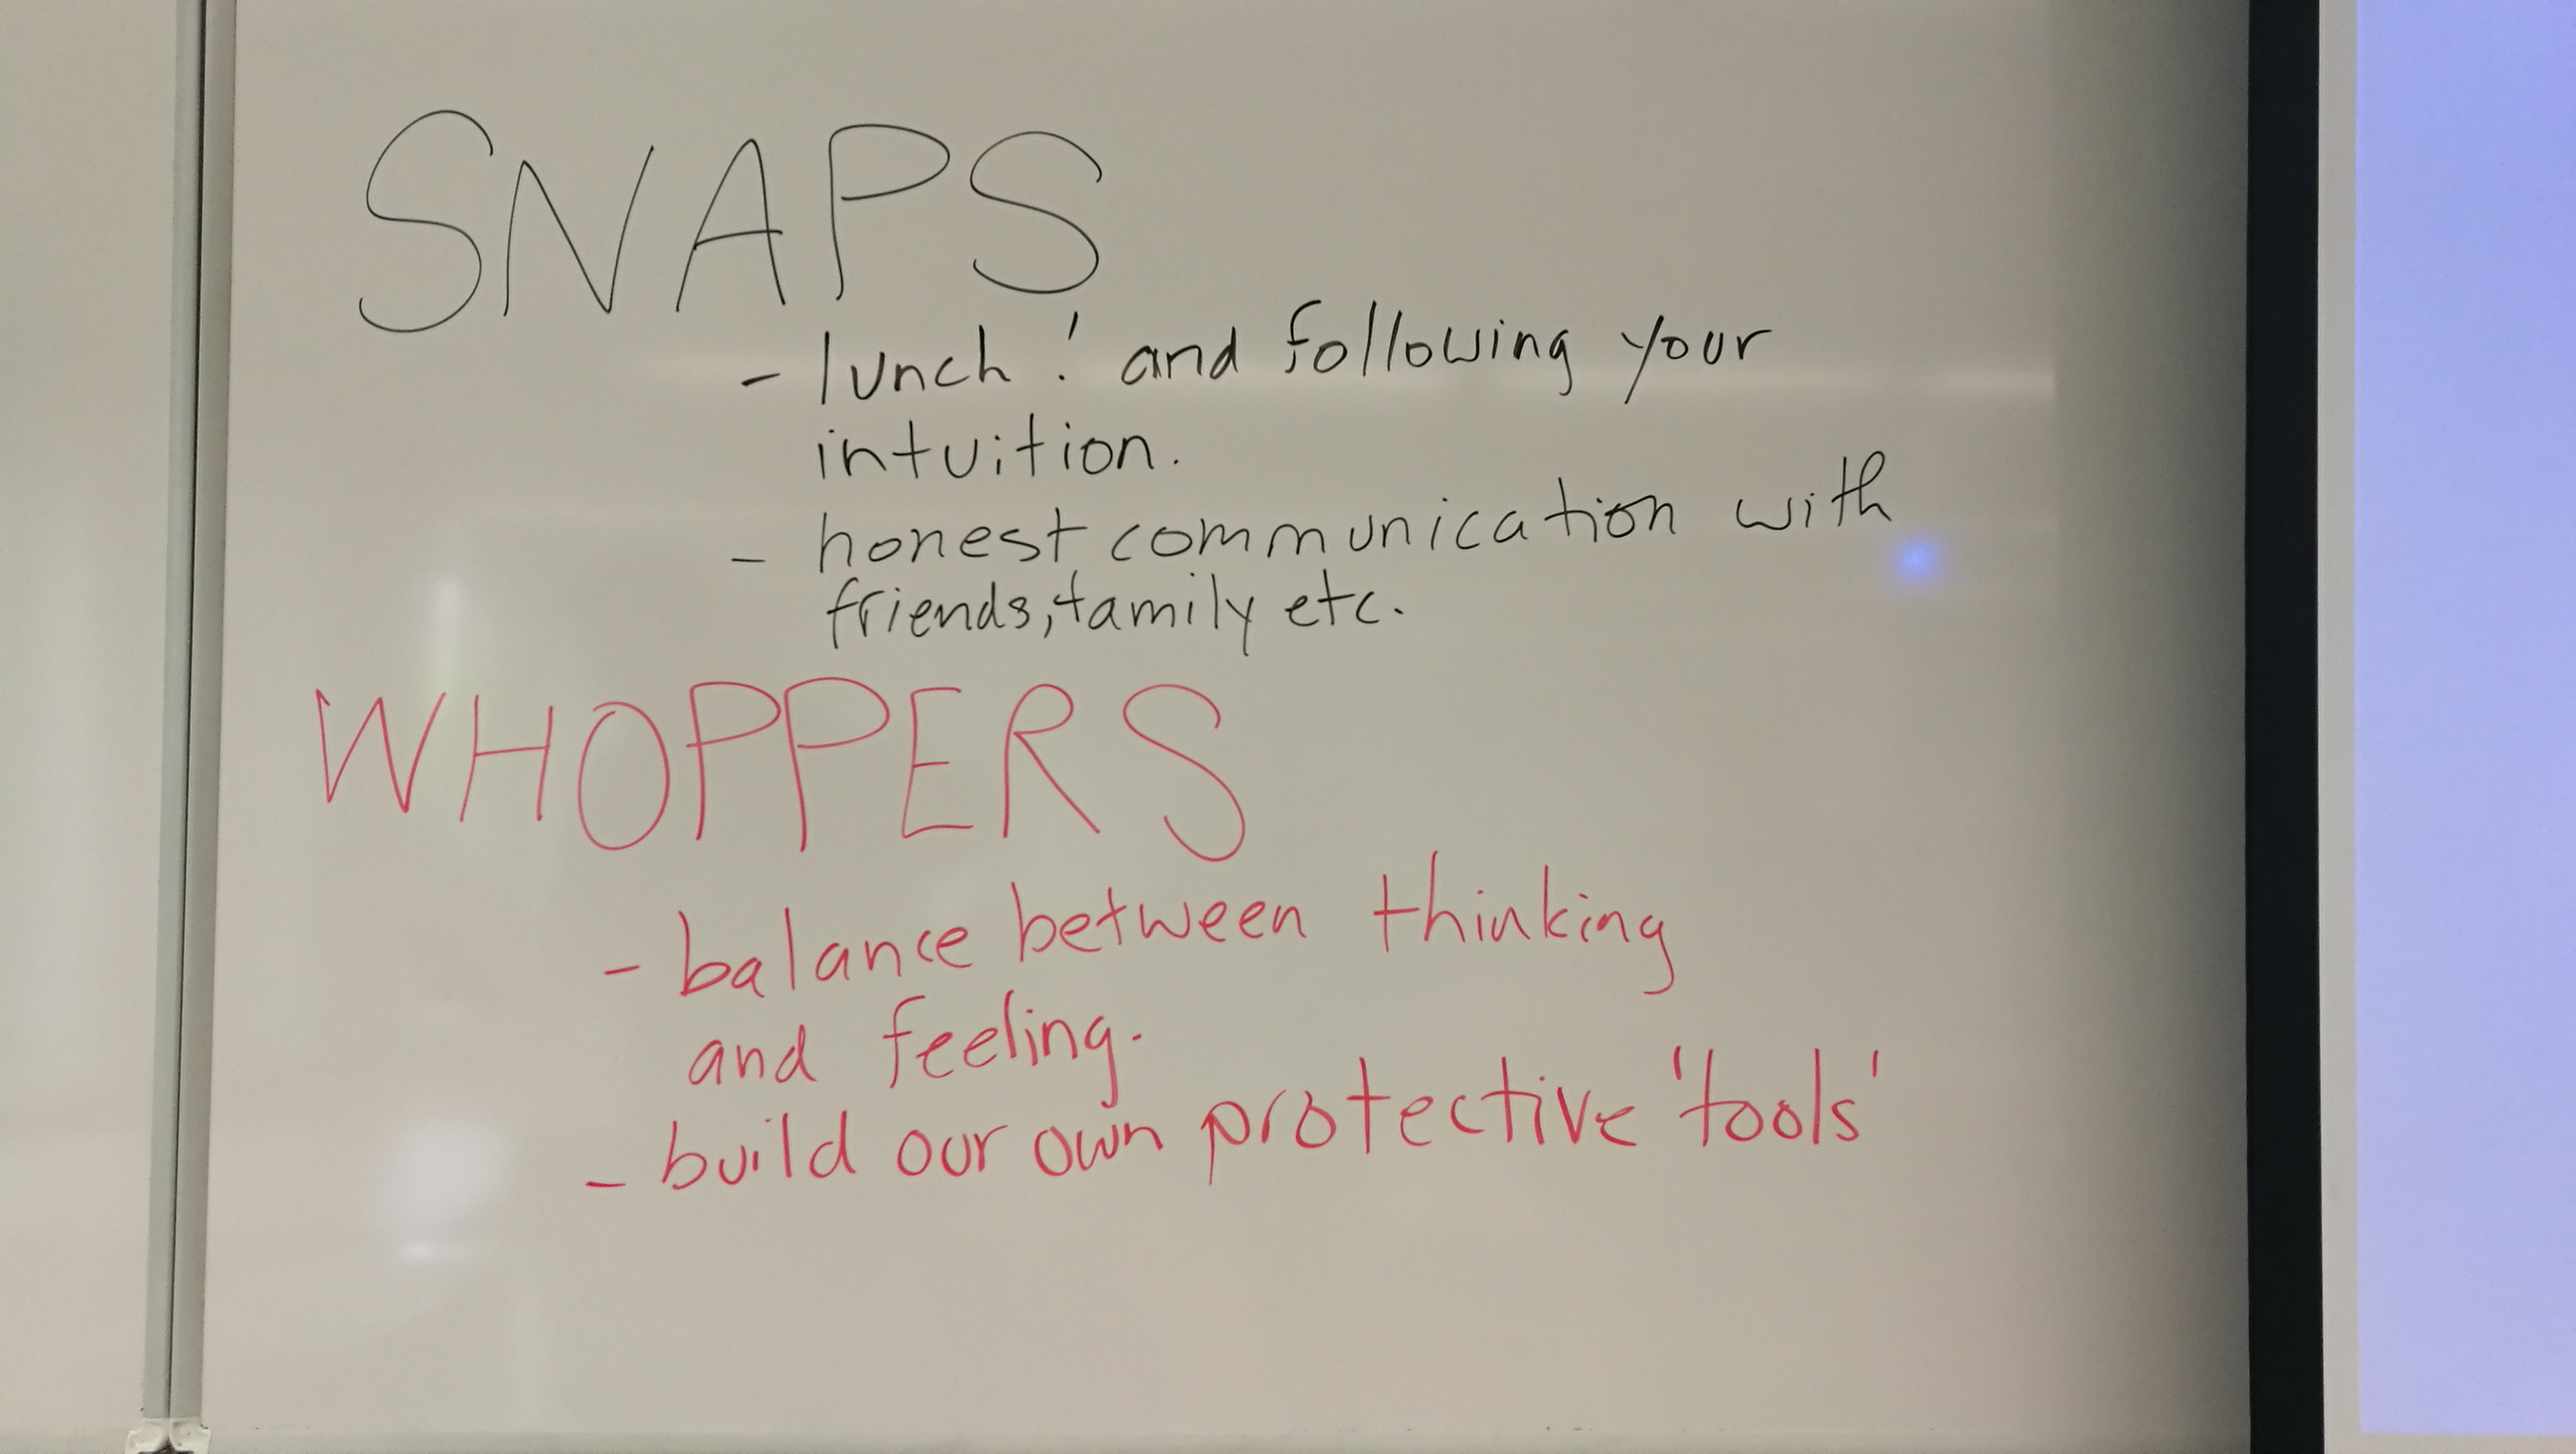 SNAPS
- lunch! and following your
intuition.
- honest communication with
friends, family etc.
WHOPPERS
- balance between thinking
and feeling.
- build our own protective 'tools'